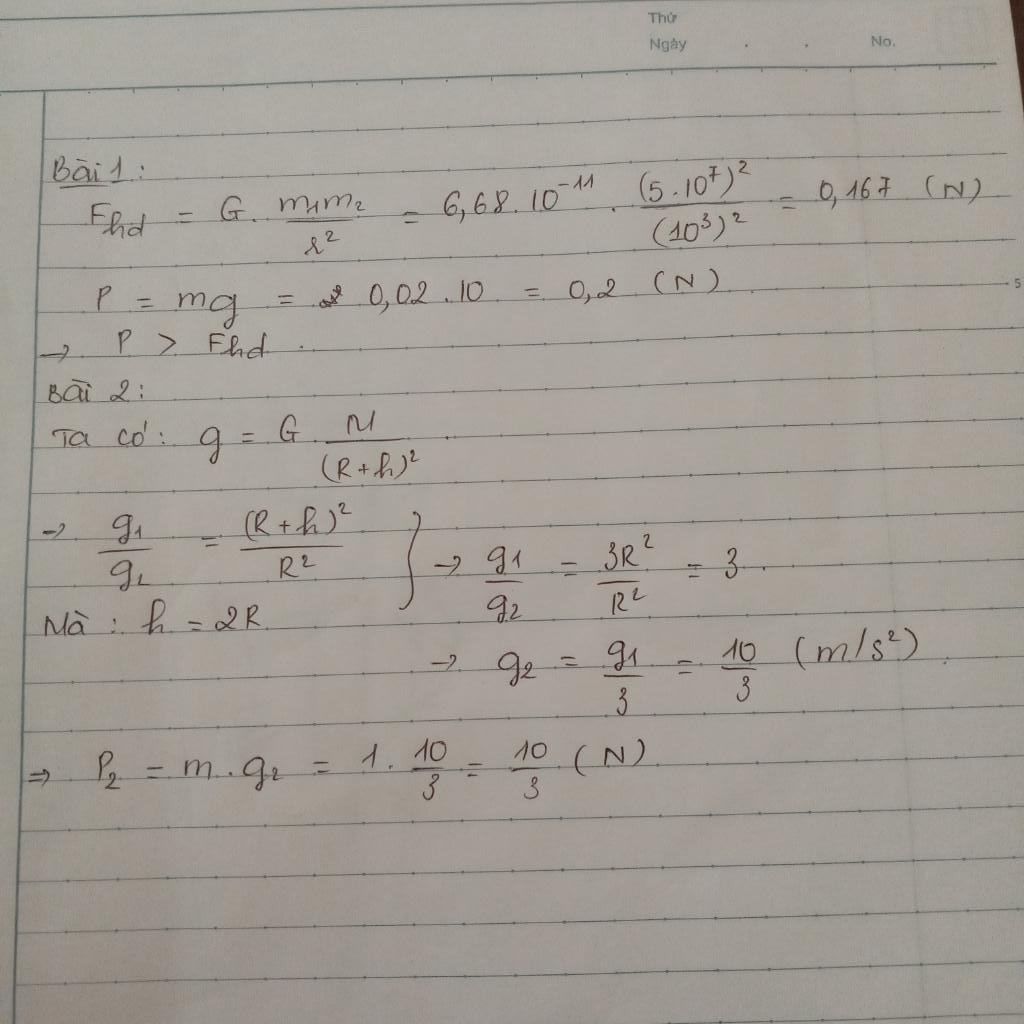 Thứ
Ngày . . No.
Bài 1:
Fhd = G. m₁m₂/r² = 6,68.10⁻¹¹ . (5.10⁷)²/(10³)² = 0,167 (N)
P = mg = 0,02.10 = 0,2 (N)
5
→ P > Fhd.
Bài 2:
Ta có: g = G M/(R+h)²
→ g₁/g₂ = (R+h)²/R² } → g₁/g₂ = 3R²/R² = 3.
Mà: h = 2R
→ g₂ = g₁/3 = 10/3 (m/s²).
⇒ P₂ = m.g₂ = 1. 10/3 = 10/3 (N)